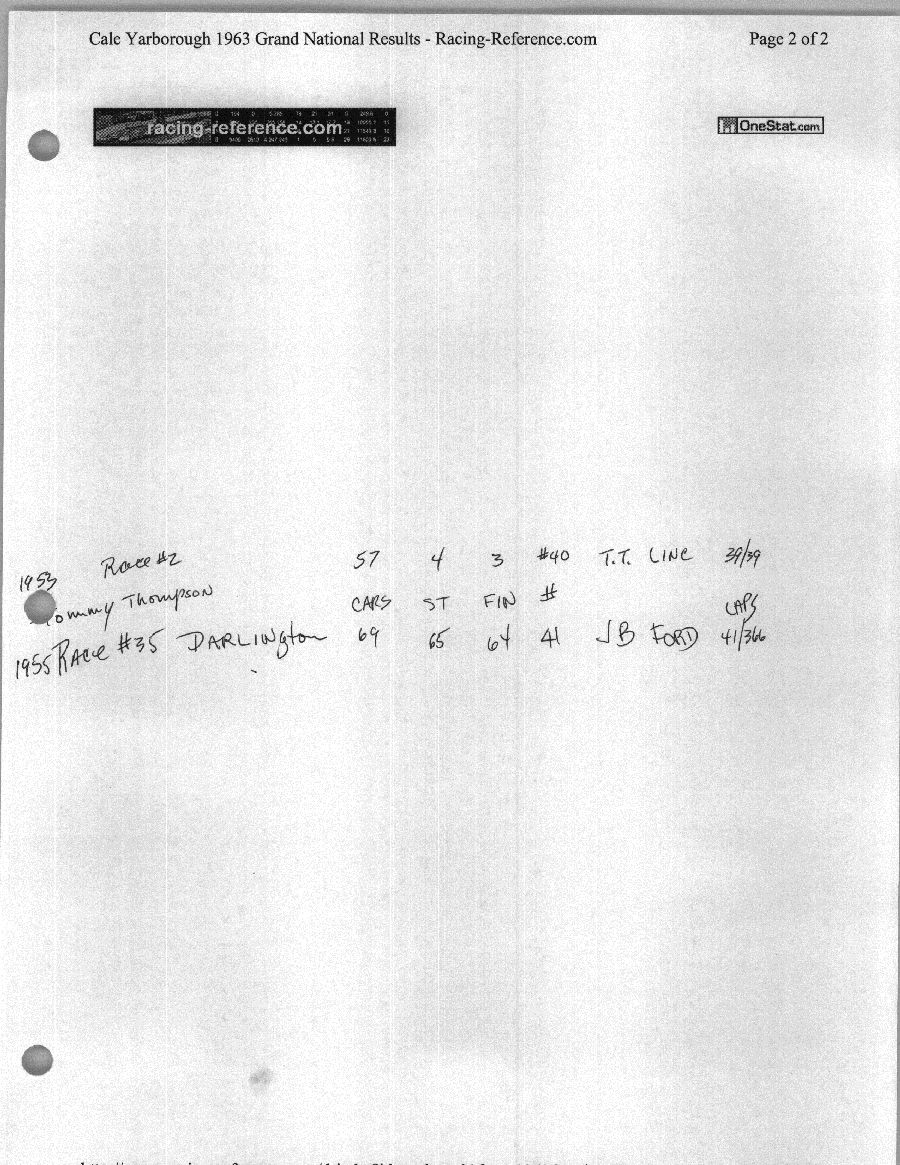 Cale Yarborough 1963 Grand National Results - Racing-Reference.com Page 2 of 2
racing-reference.com OneStat.com
1953 Race #2 57 4 3 #40 T.T. LINC 39/39
Tommy Thompson CARS ST FIN # LAPS
1955 RACE #35 DARLINGTON 69 65 64 41 JB FORD 41/366